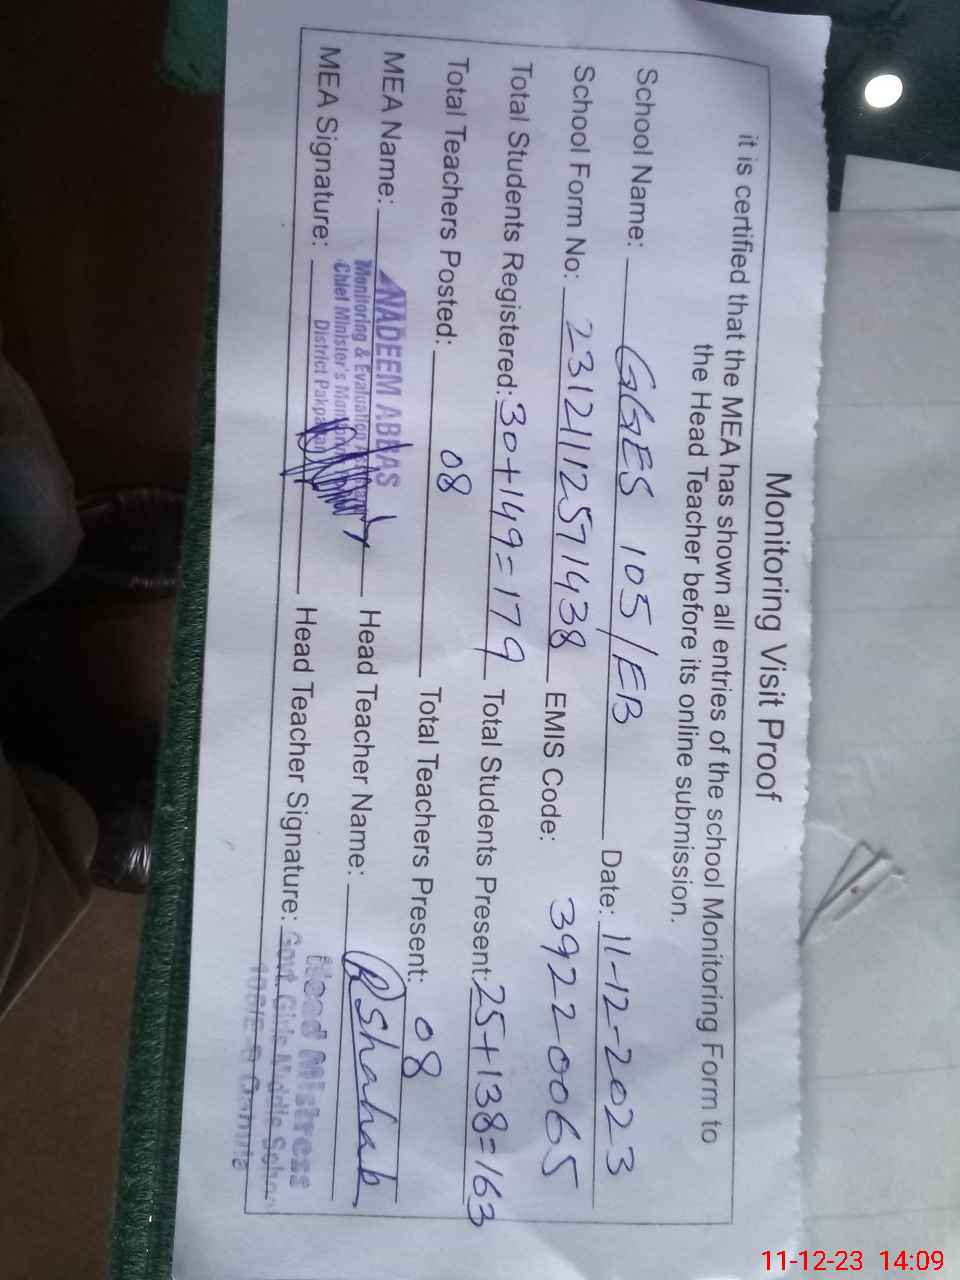 Monitoring Visit Proof
it is certified that the MEA has shown all entries of the school Monitoring Form to
the Head Teacher before its online submission.
School Name: GGES 105/EB Date: 11-12-2023
School Form No: 23121112571438 EMIS Code: 39220065
Total Students Registered: 30+149=179 Total Students Present: 25+138=163
Total Teachers Posted: 08 Total Teachers Present: 08
MEA Name: NADEEM ABBAS Head Teacher Name: RShahab
Monitoring & Evaluation
Chief Minister's
District Pakpattan
MEA Signature: Head Teacher Signature:
Head Mistress
Govt. Girls Middle School
105/E-B
11-12-23 14:09